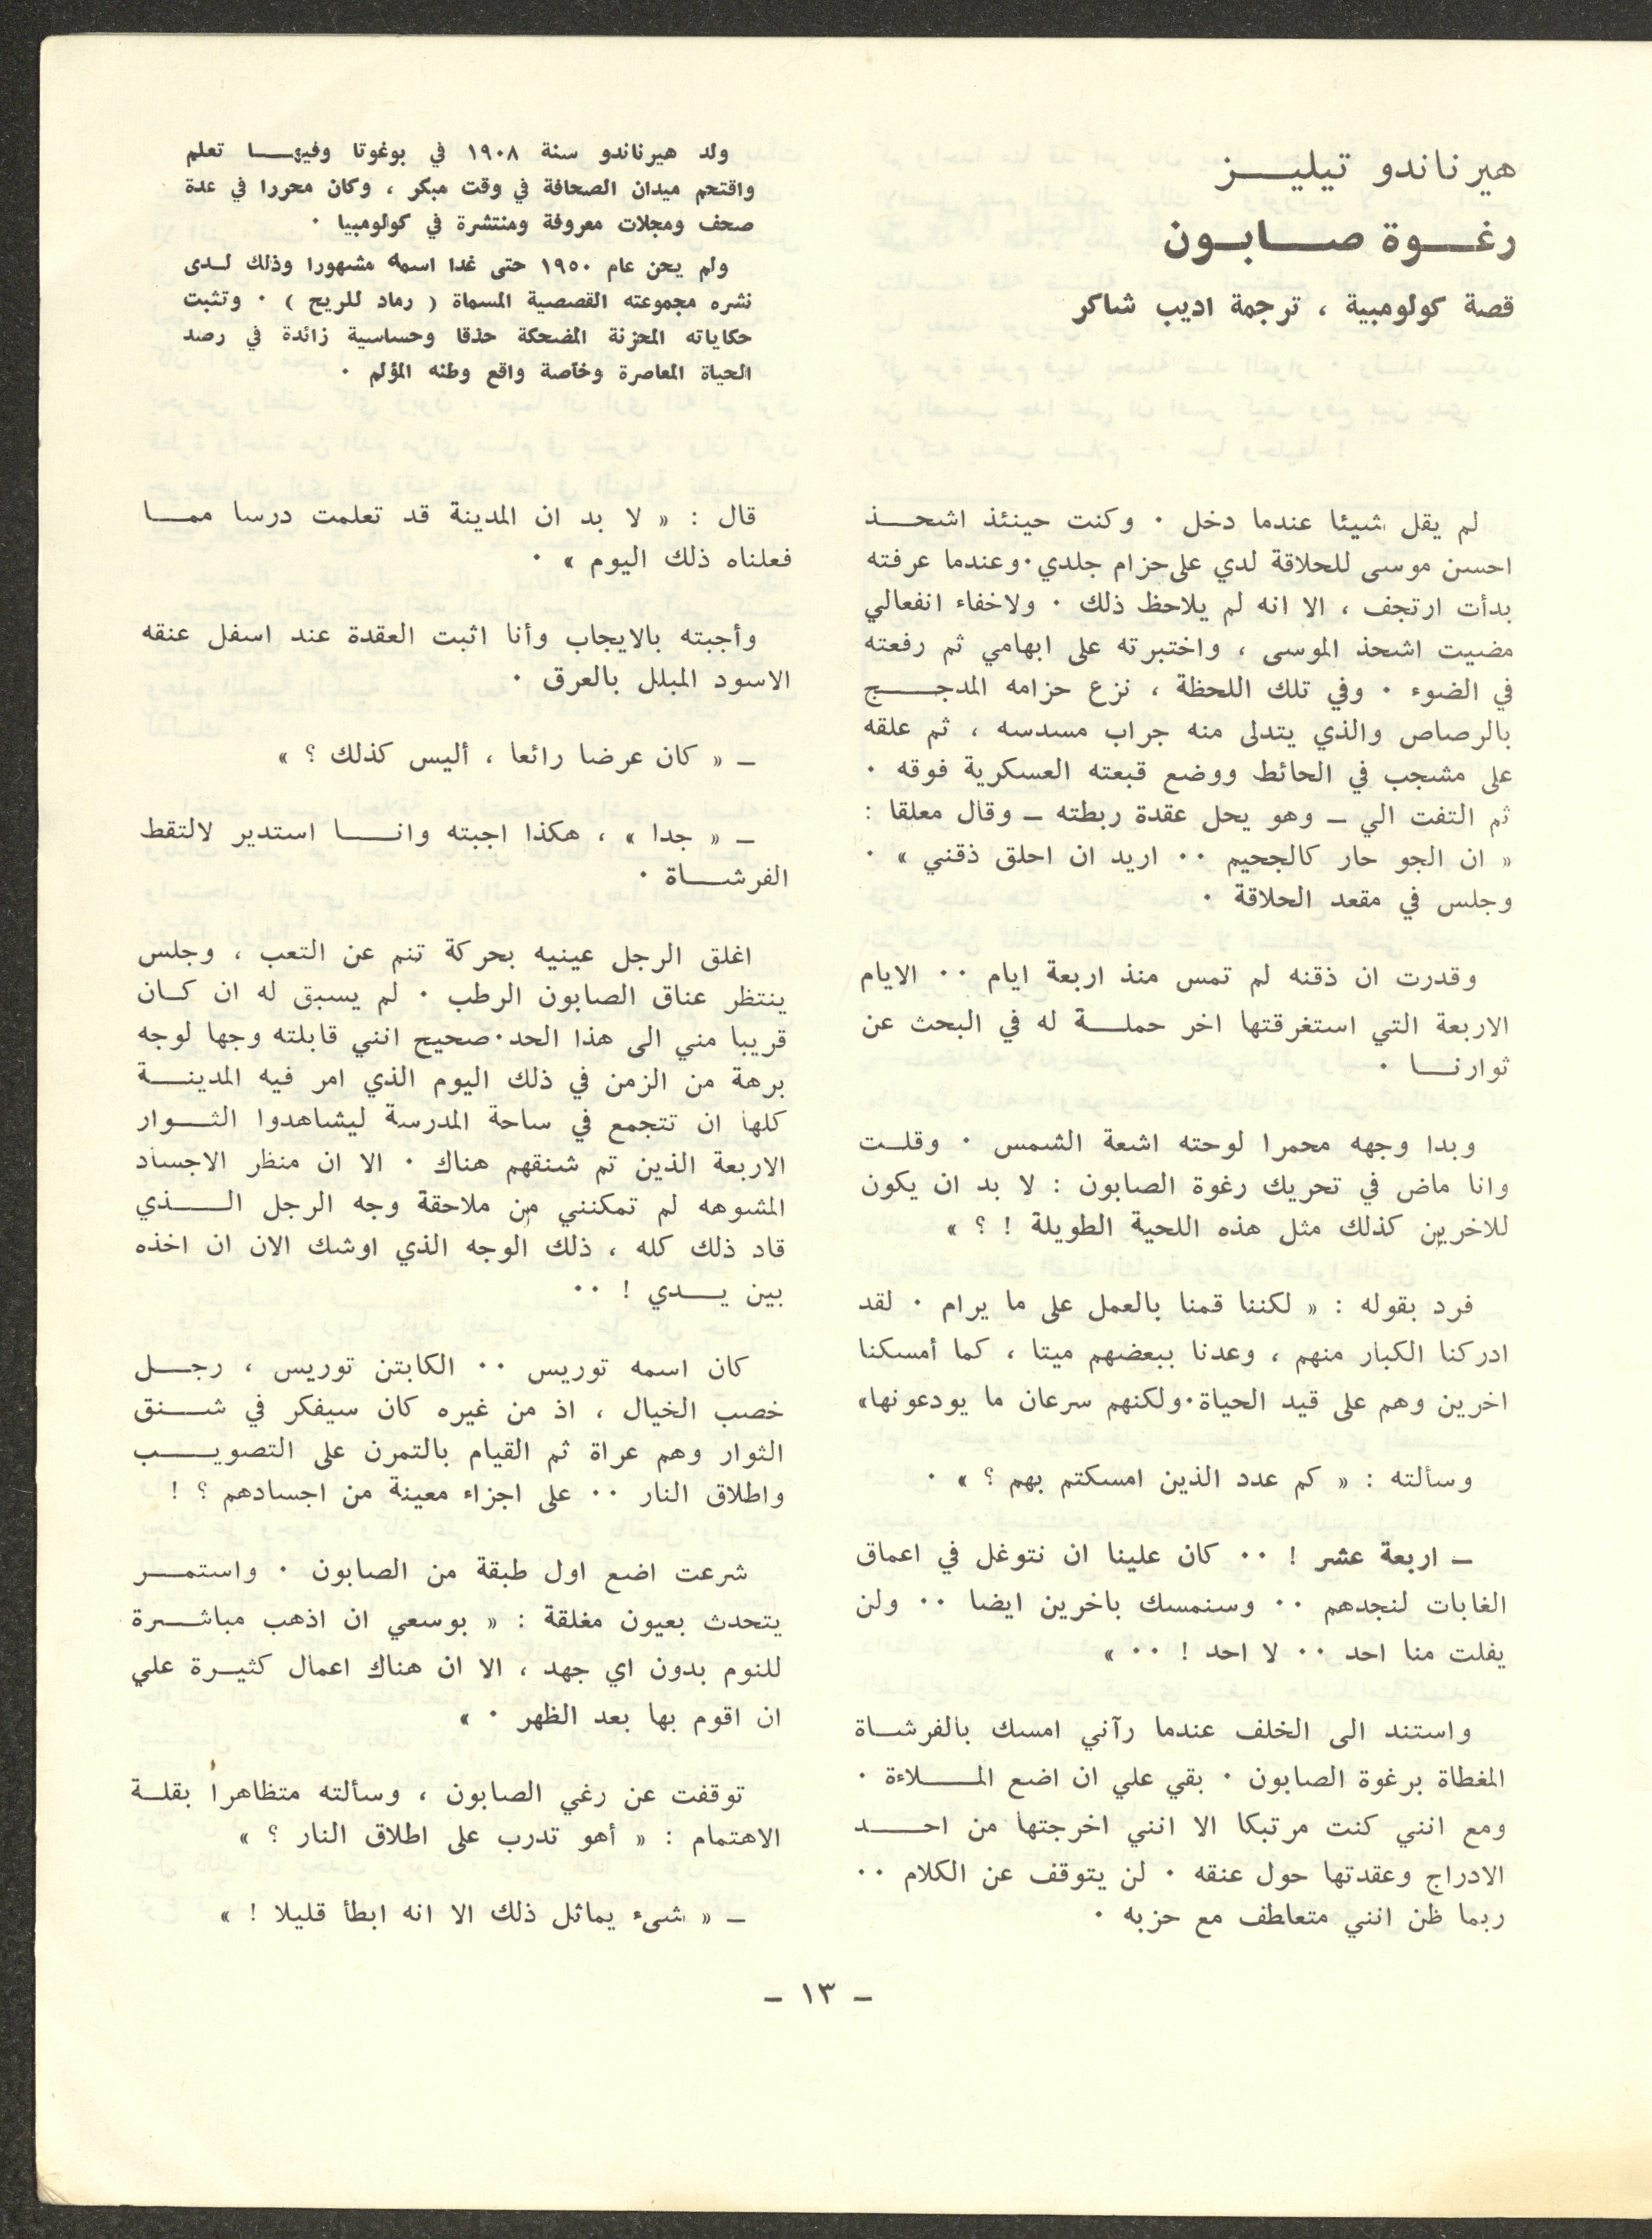 هيرناندو تيليز
رغوة صابون
قصة كولومبية ، ترجمة اديب شاكر
ولد هيرناندو سنة ١٩٠٨ في بوغوتا وفيها تعلم
واقتحم ميدان الصحافة في وقت مبكر ، وكان محررا في عدة
صحف ومجلات معروفة ومنتشرة في كولومبيا ٠
ولم يحن عام ١٩٥٠ حتى غدا اسمه مشهورا وذلك لدى
نشره مجموعته القصصية المسماة ( رماد للريح ) ٠ وتثبت
حكاياته المحزنة المضحكة حذقا وحساسية زائدة في رصد
الحياة المعاصرة وخاصة واقع وطنه المؤلم ٠
لم يقل شيئا عندما دخل ٠ وكنت حينئذ اشحذ
احسن موسى للحلاقة لدي على حزام جلدي ٠ وعندما عرفته
بدأت ارتجف ، الا انه لم يلاحظ ذلك ٠ ولاخفاء انفعالي
مضيت اشحذ الموسى ، واختبرته على ابهامي ثم رفعته
في الضوء ٠ وفي تلك اللحظة ، نزع حزامه المدجج
بالرصاص والذي يتدلى منه جراب مسدسه ، ثم علقه
على مشجب في الحائط ووضع قبعته العسكرية فوقه ٠
ثم التفت الي – وهو يحل عقدة ربطته – وقال معلقا :
« ان الجو حار كالجحيم ٠٠ اريد ان احلق ذقني » ٠
وجلس في مقعد الحلاقة ٠
وقدرت ان ذقنه لم تمس منذ اربعة ايام ٠٠ الايام
الاربعة التي استغرقتها اخر حملة له في البحث عن
ثوارنا ٠
وبدا وجهه محمرا لوحته اشعة الشمس ٠ وقلت
وانا ماض في تحريك رغوة الصابون : لا بد ان يكون
للاخرين كذلك مثل هذه اللحية الطويلة ! ؟ »
فرد بقوله : « لكننا قمنا بالعمل على ما يرام ٠ لقد
ادركنا الكبار منهم ، وعدنا ببعضهم ميتا ، كما أمسكنا
اخرين وهم على قيد الحياة ٠ ولكنهم سرعان ما يودعونها»
وسألته : « كم عدد الذين امسكتم بهم ؟ » ٠
– اربعة عشر ! ٠٠ كان علينا ان نتوغل في اعماق
الغابات لنجدهم ٠٠ وسنمسك باخرين ايضا ٠٠ ولن
يفلت منا احد ٠٠ لا احد ! ٠٠ »
واستند الى الخلف عندما رآني امسك بالفرشاة
المغطاة برغوة الصابون ٠ بقي علي ان اضع الملاءة ٠
ومع انني كنت مرتبكا الا انني اخرجتها من احد
الادراج وعقدتها حول عنقه ٠ لن يتوقف عن الكلام ٠٠
ربما ظن انني متعاطف مع حزبه ٠
قال : « لا بد ان المدينة قد تعلمت درسا مما
فعلناه ذلك اليوم » ٠
وأجبته بالايجاب وأنا اثبت العقدة عند اسفل عنقه
الاسود المبلل بالعرق ٠
– « كان عرضا رائعا ، أليس كذلك ؟ »
– « جدا » ، هكذا اجبته وانا استدير لالتقط
الفرشاة ٠
اغلق الرجل عينيه بحركة تنم عن التعب ، وجلس
ينتظر عناق الصابون الرطب ٠ لم يسبق له ان كان
قريبا مني الى هذا الحد ٠ صحيح انني قابلته وجها لوجه
برهة من الزمن في ذلك اليوم الذي امر فيه المدينة
كلها ان تتجمع في ساحة المدرسة ليشاهدوا الثوار
الاربعة الذين تم شنقهم هناك ٠ الا ان منظر الاجساد
المشوهه لم تمكنني من ملاحقة وجه الرجل الذي
قاد ذلك كله ، ذلك الوجه الذي اوشك الان ان اخذه
بين يدي ! ٠٠
كان اسمه توريس ٠٠ الكابتن توريس ، رجل
خصب الخيال ، اذ من غيره كان سيفكر في شنق
الثوار وهم عراة ثم القيام بالتمرن على التصويب
واطلاق النار ٠٠ على اجزاء معينة من اجسادهم ؟ !
شرعت اضع اول طبقة من الصابون ٠ واستمر
يتحدث بعيون مغلقة : « بوسعي ان اذهب مباشرة
للنوم بدون اي جهد ، الا ان هناك اعمال كثيرة علي
ان اقوم بها بعد الظهر ٠ »
توقفت عن رغي الصابون ، وسألته متظاهراً بقلة
الاهتمام : « أهو تدرب على اطلاق النار ؟ »
– « شيء يماثل ذلك الا انه ابطأ قليلا ! »
– ١٣ –